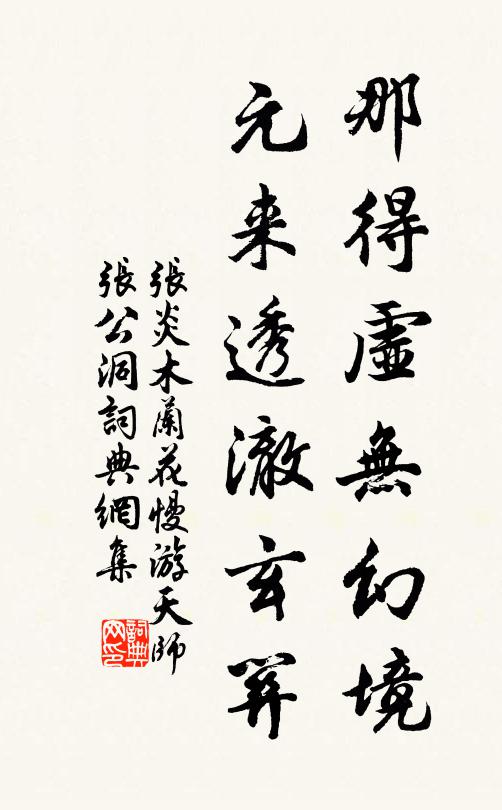 那得虛無幻境
元来透澈玄關
張炎木蘭花慢游天師
張公洞詞典網集
詞典网印